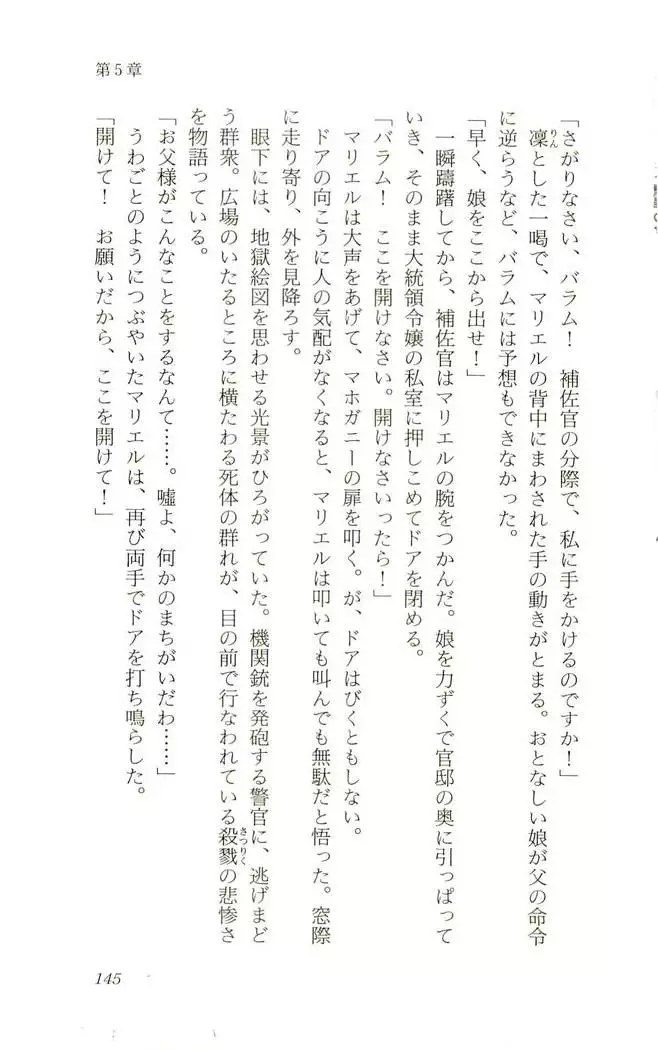 第5章
「さがりなさい、バラム！　補佐官の分際で、私に手をかけるのですか！」
凜とした一喝で、マリエルの背中にまわされた手の動きがとまる。おとなしい娘が父の命令
に逆らうなど、バラムには予想もできなかった。
「早く、娘をここから出せ！」
一瞬躊躇してから、補佐官はマリエルの腕をつかんだ。娘を力ずくで官邸の奥に引っぱって
いき、そのまま大統領令嬢の私室に押しこめてドアを閉める。
「バラム！　ここを開けなさい。開けなさいったら！」
マリエルは大声をあげて、マホガニーの扉を叩く。が、ドアはびくともしない。
ドアの向こうに人の気配がなくなると、マリエルは叩いても叫んでも無駄だと悟った。窓際
に走り寄り、外を見降ろす。
眼下には、地獄絵図を思わせる光景がひろがっていた。機関銃を発砲する警官に、逃げまど
う群衆。広場のいたるところに横たわる死体の群れが、目の前で行なわれている殺戮の悲惨さ
を物語っている。
「お父様がこんなことをするなんて……。嘘よ、何かのまちがいだわ……」
うわごとのようにつぶやいたマリエルは、再び両手でドアを打ち鳴らした。
「開けて！　お願いだから、ここを開けて！」
145